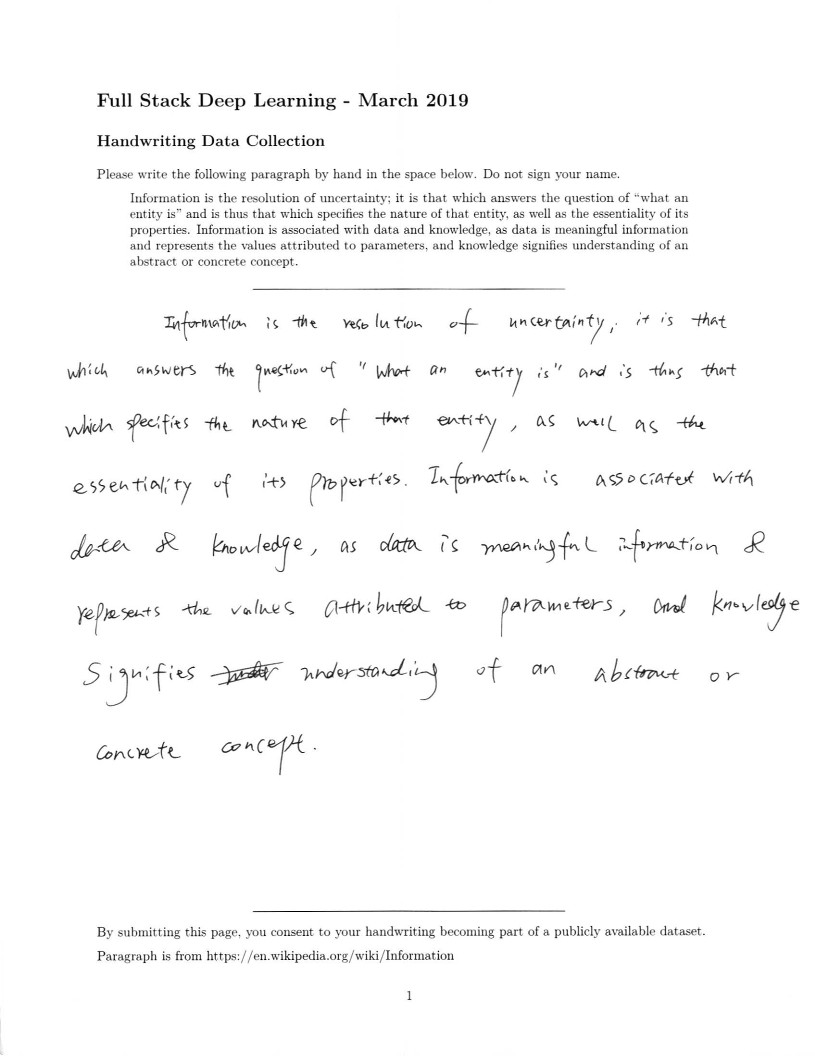 Full Stack Deep Learning - March 2019
Handwriting Data Collection
Please write the following paragraph by hand in the space below. Do not sign your name.
Information is the resolution of uncertainty; it is that which answers the question of “what an
entity is” and is thus that which specifies the nature of that entity, as well as the essentiality of its
properties. Information is associated with data and knowledge, as data is meaningful information
and represents the values attributed to parameters, and knowledge signifies understanding of an
abstract or concrete concept.
Information is the resolution of uncertainty; it is that
which answers the question of "what an entity is" and is thus that
which specifies the nature of that entity, as well as the
essentiality of its properties. Information is associated with
data & knowledge, as data is meaningful information &
represents the values attributed to parameters, and knowledge
Signifies understanding of an abstract or
concrete concept.
By submitting this page, you consent to your handwriting becoming part of a publicly available dataset.
Paragraph is from https://en.wikipedia.org/wiki/Information
1